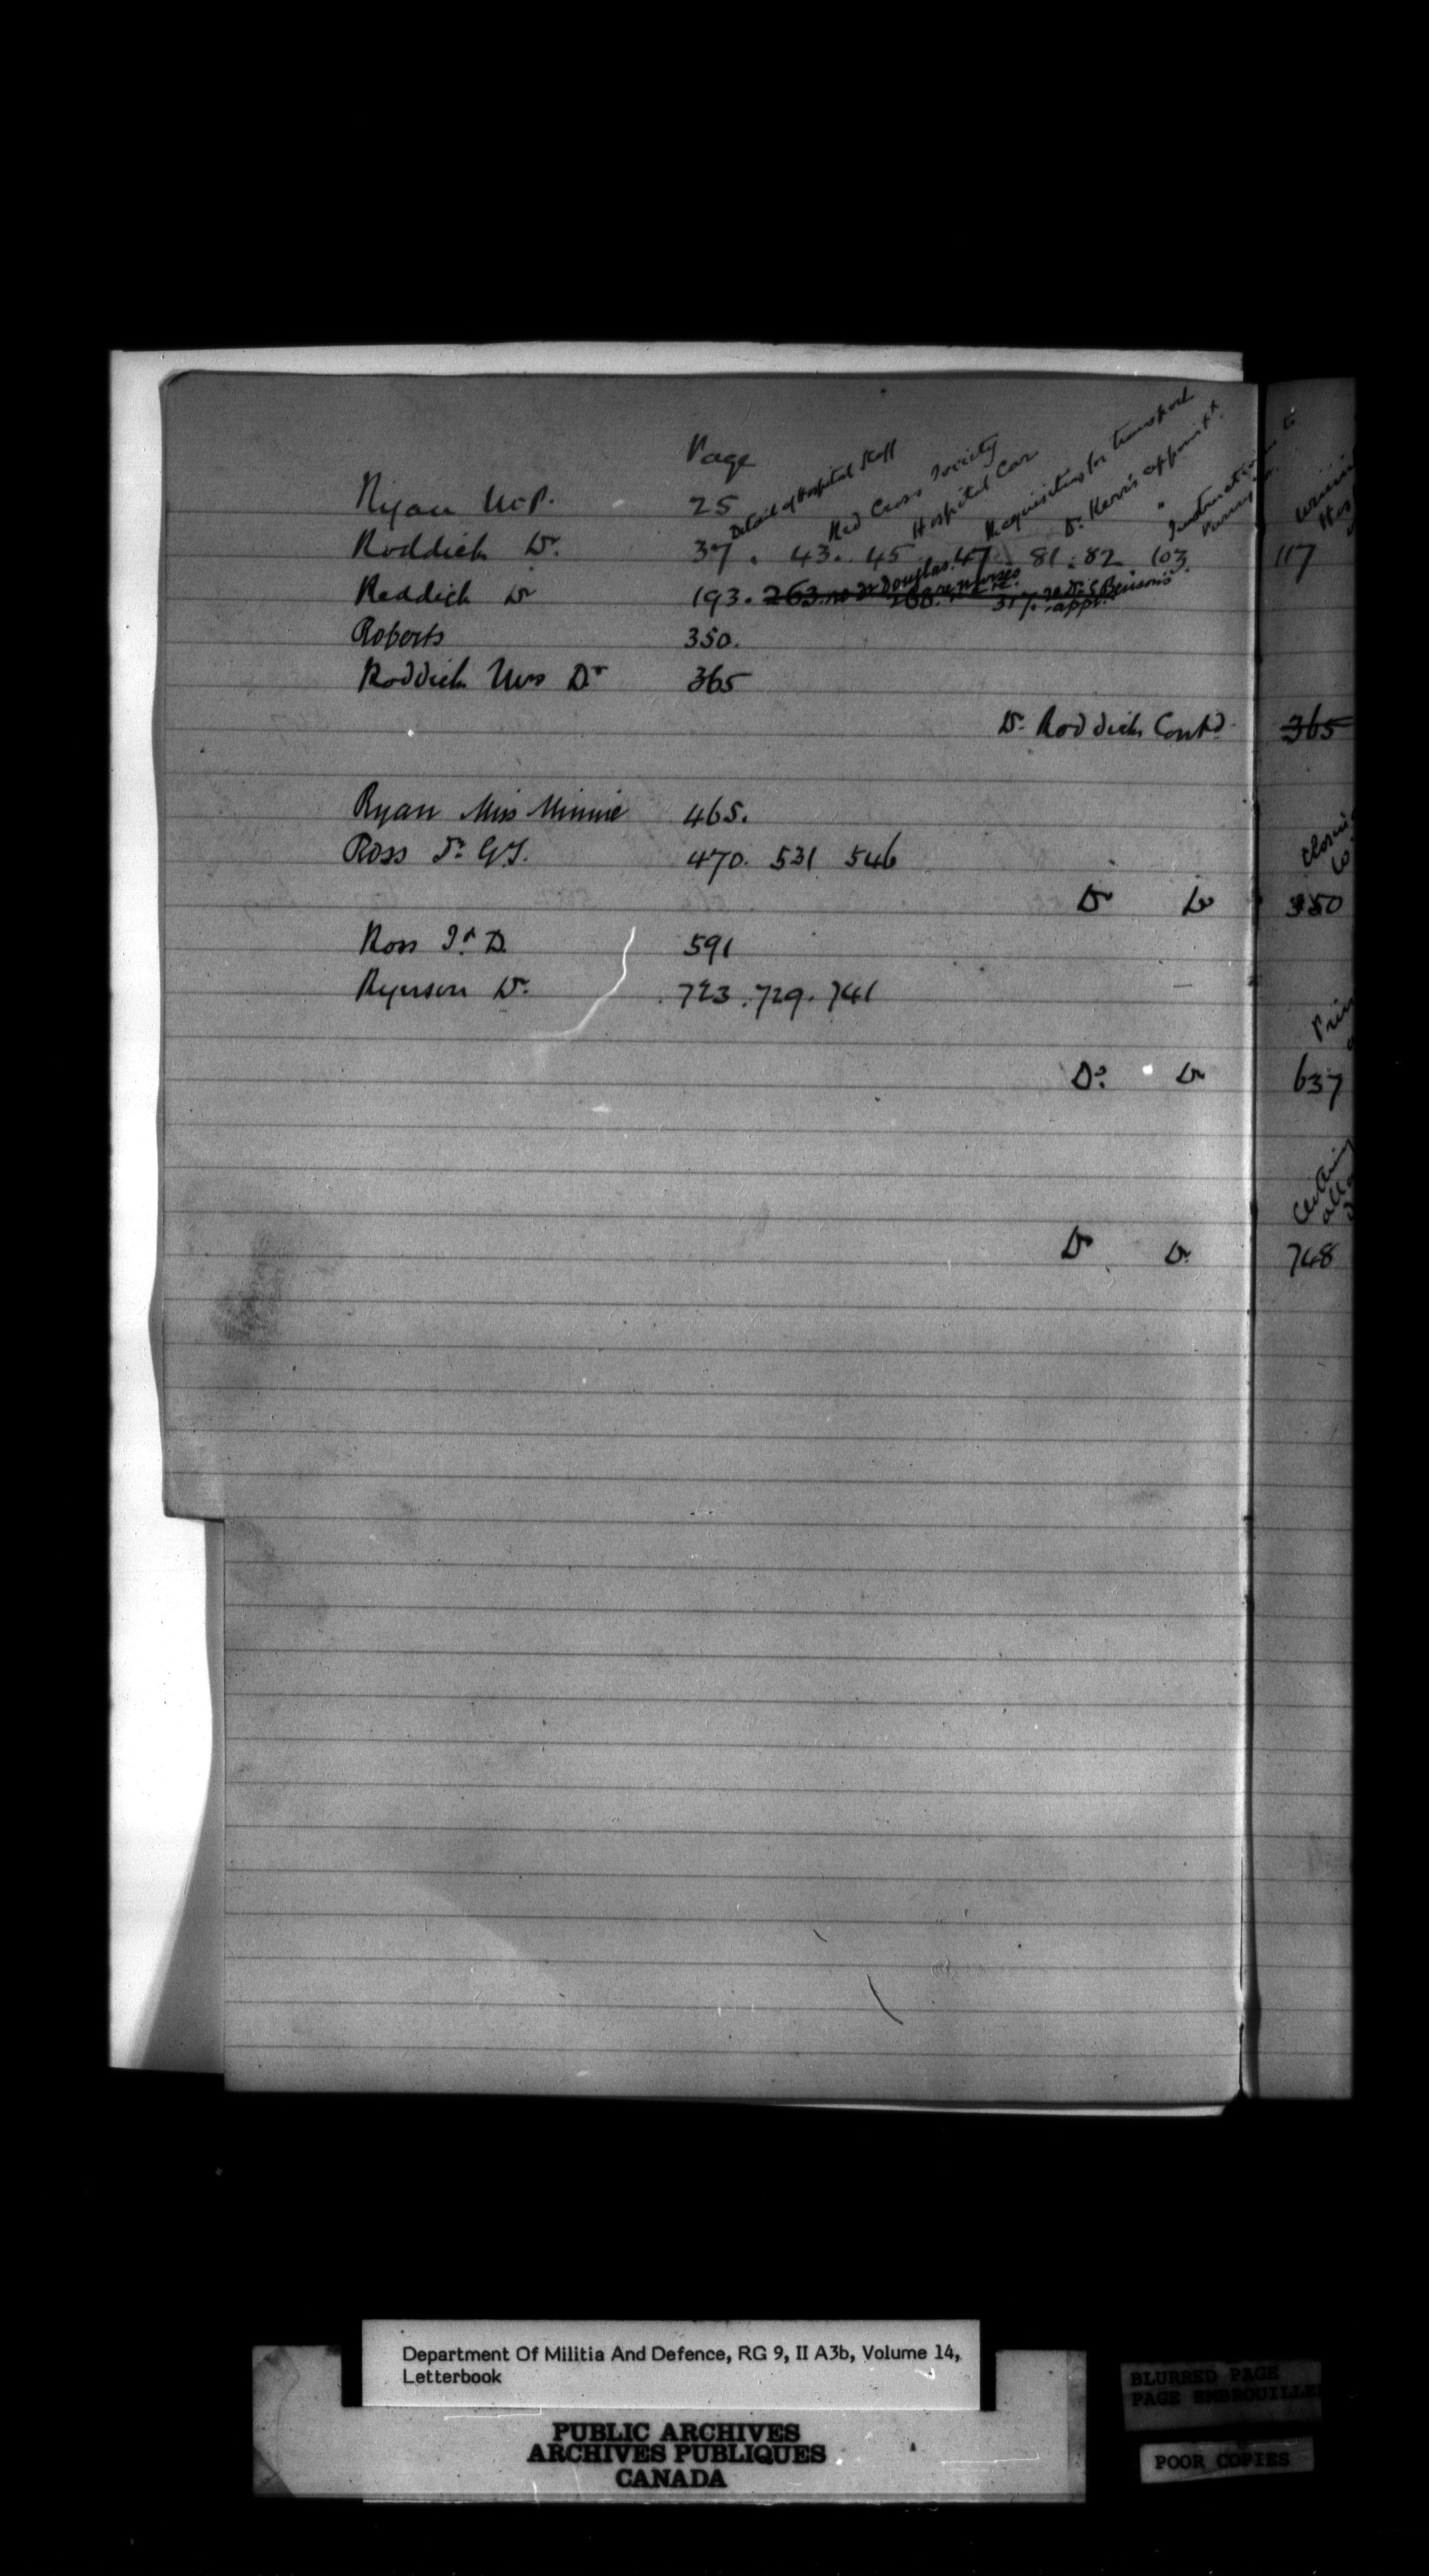 Page
Detail of Hospital Staff
Red Cross Society
Hospital Car
Requisitions for transport
Dr. Kerr's appointt.
Ryan 25
Roddick Dr. 37. 43. 45. 47. 81. 82. 103 117
Reddick Dr 193. 263 re Dr Douglas. 268 re nurses 317. re Dr. Benson's appt.
Roberts 350.
Roddick Mrs Dr 365
Dr. Roddick Contd. 365
Ryan Miss Minnie 465.
Ross Dr. G.T. 470. 531 546
Do Do 350
Ross J. D. 591
Ryerson Dr. 723. 729. 741
Do. Do 637
Do Do 748
Department Of Militia And Defence, RG 9, II A3b, Volume 14,
Letterbook
PUBLIC ARCHIVES
ARCHIVES PUBLIQUES
CANADA
BLURRED PAGE
PAGE EMBROUILLEE
POOR COPIES